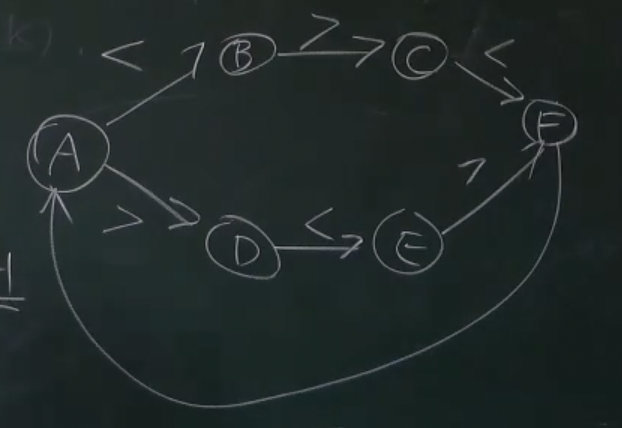 k)
< B > C <
A F
> D < E >
-1